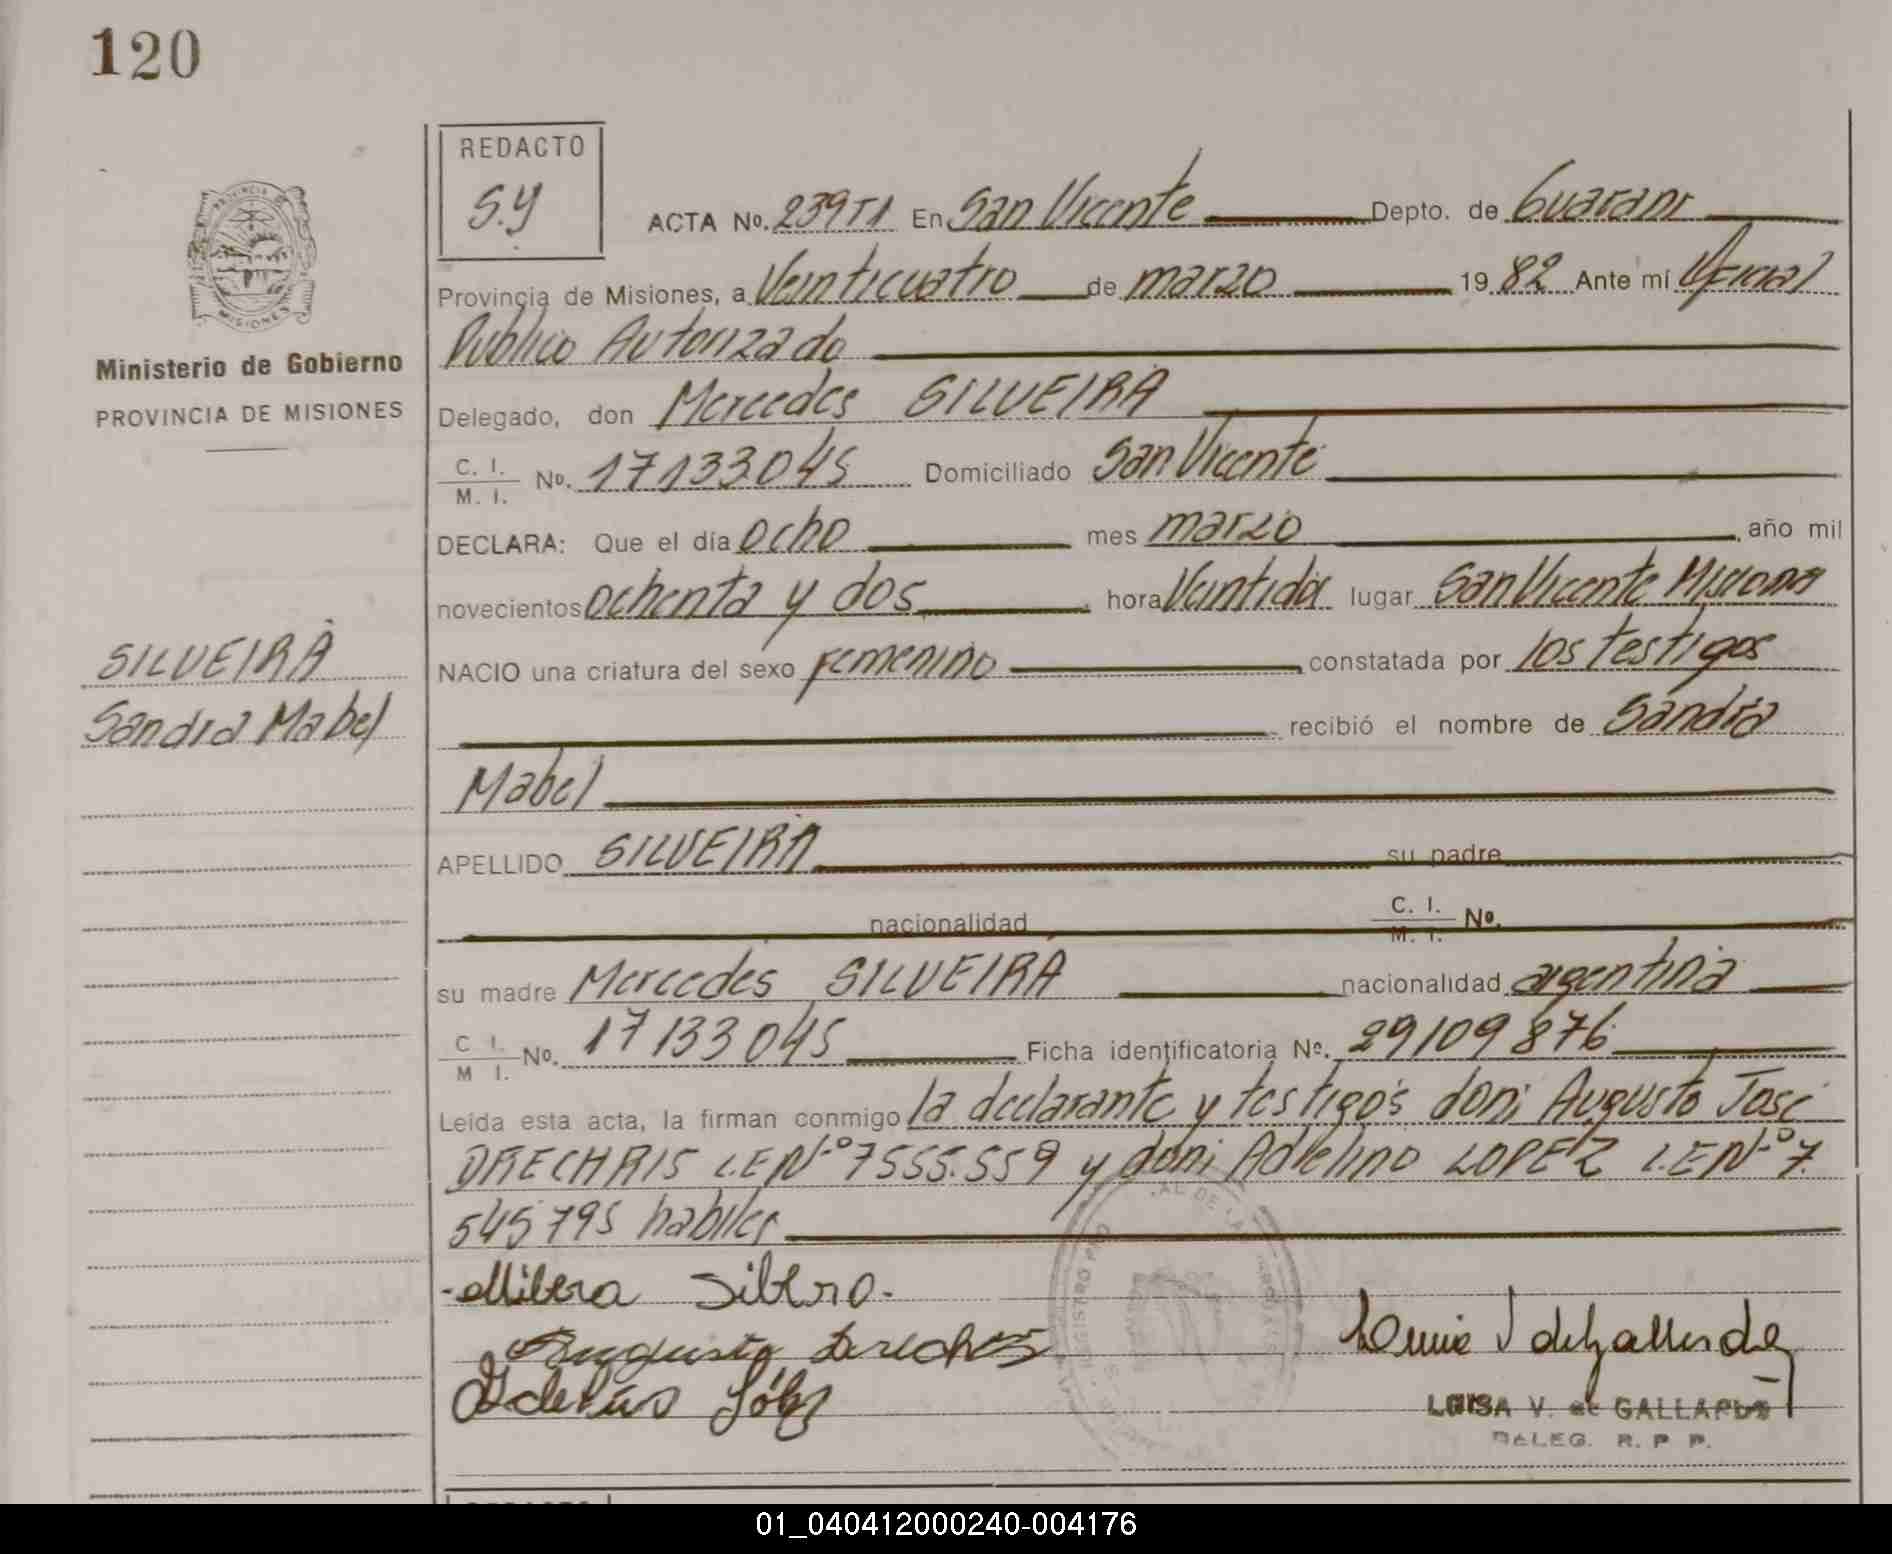 120
REDACTO
S.Y
ACTA No. 239T1 En San Vicente Depto. de Guarani
Provincia de Misiones, a Veinticuatro de marzo 19 82 Ante mí Oficial
Público Autorizado
Ministerio de Gobierno
PROVINCIA DE MISIONES
Delegado, don Mercedes SILVEIRA
C. I.
M. I. No. 17133045 Domiciliado San Vicente
DECLARA: Que el día ocho mes marzo año mil
novecientos ochenta y dos hora Veintidós lugar San Vicente Misiones
SILVEIRA
Sandra Mabel
NACIO una criatura del sexo femenino constatada por los testigos
recibió el nombre de Sandra
Mabel
APELLIDO SILVEIRA su padre
nacionalidad C. I.
M. I. No.
su madre Mercedes SILVEIRA nacionalidad argentina
C I.
M I. No. 17133045 Ficha identificatoria No. 29109876
Leída esta acta, la firman conmigo la declarante y testigos don: Augusto José
DRECHRIS L.E Nº 7555.559 y don: Adelino LOPEZ L.E Nº 7.
545795 habiles
Augusto
LUISA V. de GALLARDO
DELEG. R. P P.
01_040412000240-004176